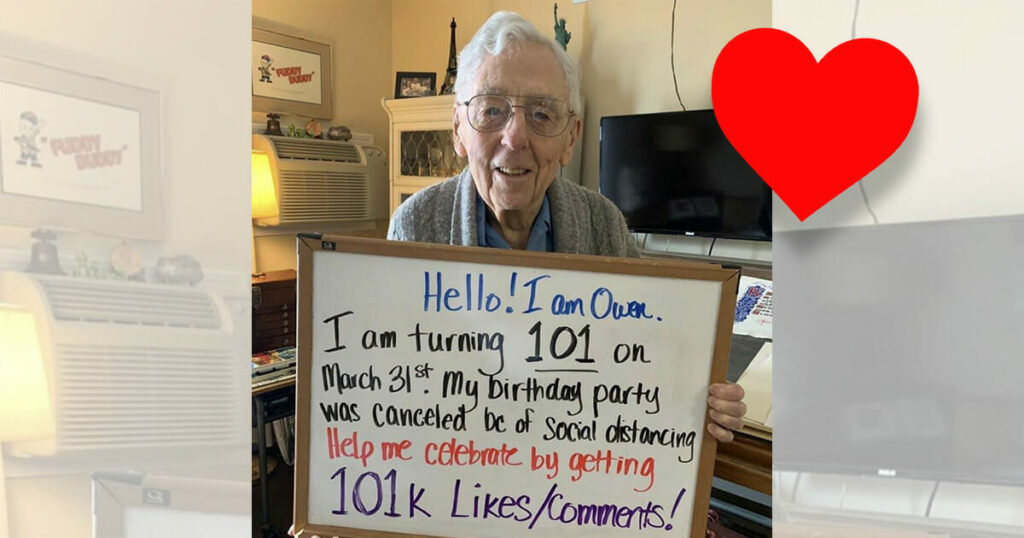 "FUDDY
DUDDY"
Hello! I am Owen.
I am turning 101 on
March 31st. My birthday party
was canceled bc of Social distancing
Help me celebrate by getting
101k Likes/Comments!